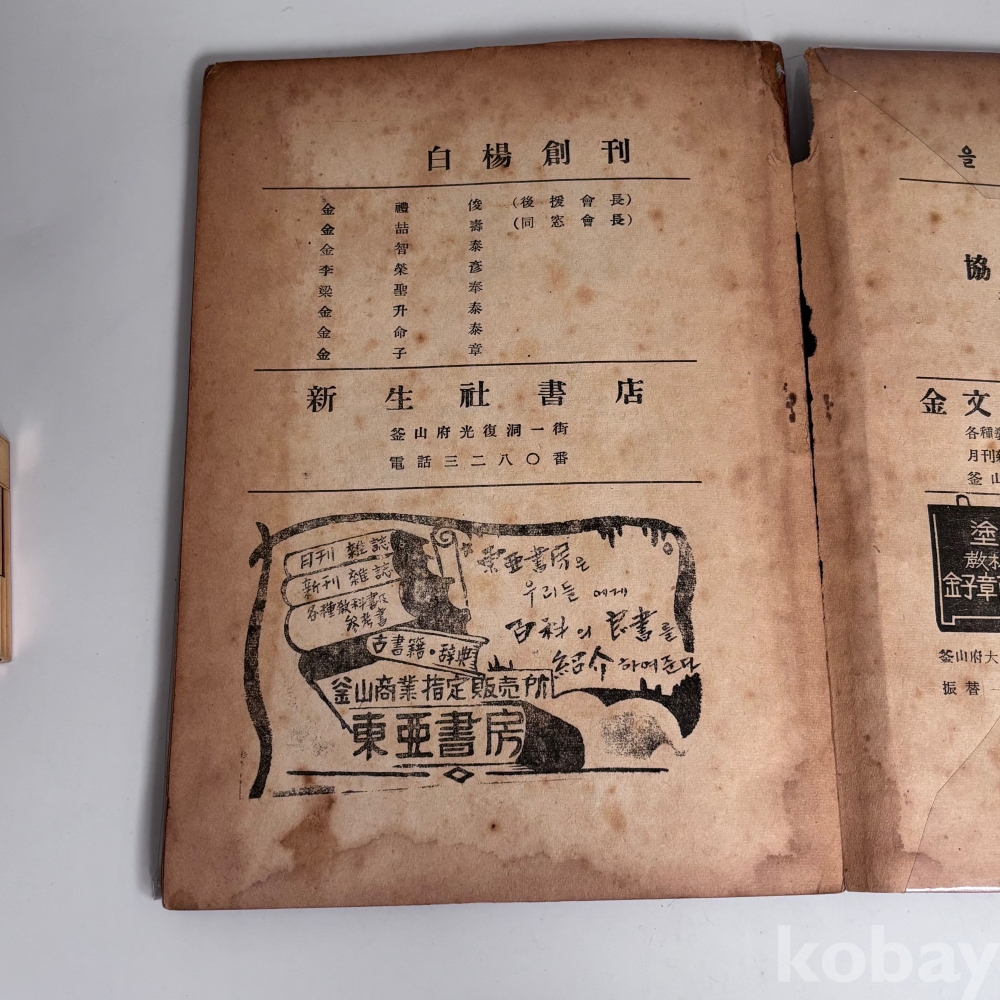 白楊創刊
金禮俊 (後援會長)
金喆壽 (同窓會長)
金智泰
李榮彦
梁聖奉
金升泰
金命泰
金子章
新生社書店
釜山府光復洞一街
電話三二八〇番
月刊 雜誌
新刊 雜誌
各種敎科書及
參考書
古書籍·辞典
釜山商業指定販売所
東亜書房
東亜書房은
우리들에게
百科의 良書를
紹介하여준다
을
協
金文
各種
月刊
釜山
塗
敎科
金子章
釜山府大
振替一
kobay